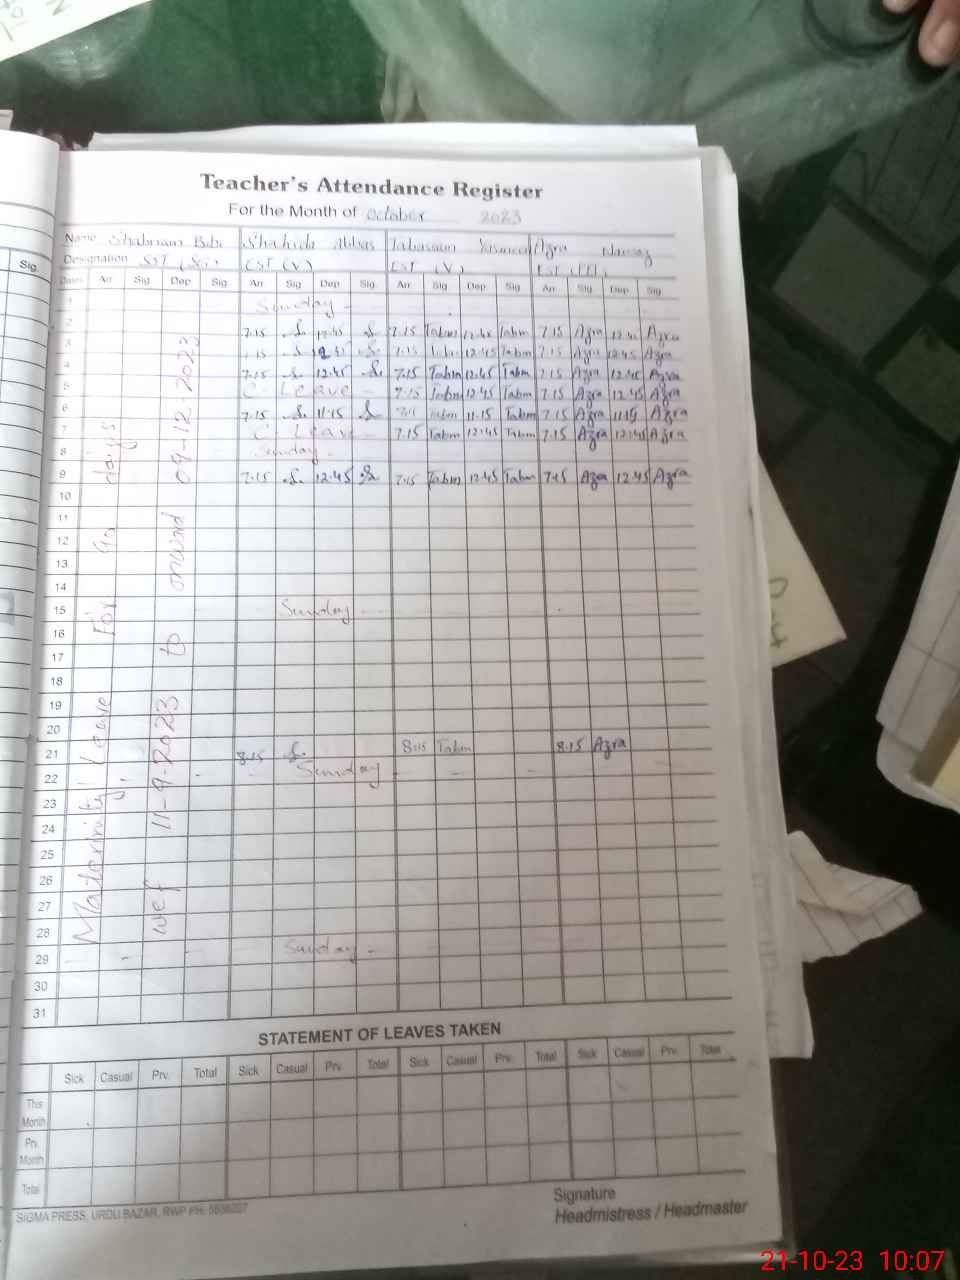 Sig.
Teacher's Attendance Register
For the Month of October 2023
Name Shabnam Bibi Shahida Abbas Tabassum Yasmeen Azra Nawaz
Designation SST (Sci) EST (V) EST (V)
Dates Arr Sig Dep Sig. Arr Sig Dep Sig. Arr Sig. Dep Sig Arr Sig Dep Sig.
1 Sunday
2 7.15 S. 12.45 S. 7.15 Tabm 12.45 Tabm 7.15 Azra 12.45 Azra
3 S. 12.45 S. 7.15 12.45 Tabm 7.15 Azra 12.45 Azra
4 7.15 S. 12.45 S. 7.15 Tabm 12.45 Tabm 7.15 Azra 12.45 Azra
5 C-Leave - 7.15 Tabm 12.45 Tabm 7.15 Azra 12.45 Azra
6 7.15 S. 11.15 S. Tabm 11.15 Tabm 7.15 Azra 11.15 Azra
7 C-Leave - 7.15 Tabm 12.45 Tabm 7.15 Azra 12.45 Azra
8 Sunday -
9 7.15 S. 12.45 S. 7.15 Tabm 12.45 Tabm 7.15 Azra 12.45 Azra
10
11
12
13
14
15 Sunday
16
17
18
19
20
21 8.15 S. 8:15 Tabm 8.15 Azra
22 Sunday
23
24
25
26
27
28
29 Sunday -
30
31
Maternity Leave For 90 days
wef 11-9-2023 to onward 09-12-2023
STATEMENT OF LEAVES TAKEN
Sick Casual Prv. Total Sick Casual Prv. Total Sick Casual Prv. Total Sick Casual Prv. Total
This
Month
Prv.
Month
Total
SIGMA PRESS, URDU BAZAR, RWP PH: 5536227
Signature
Headmistress / Headmaster
21-10-23 10:07